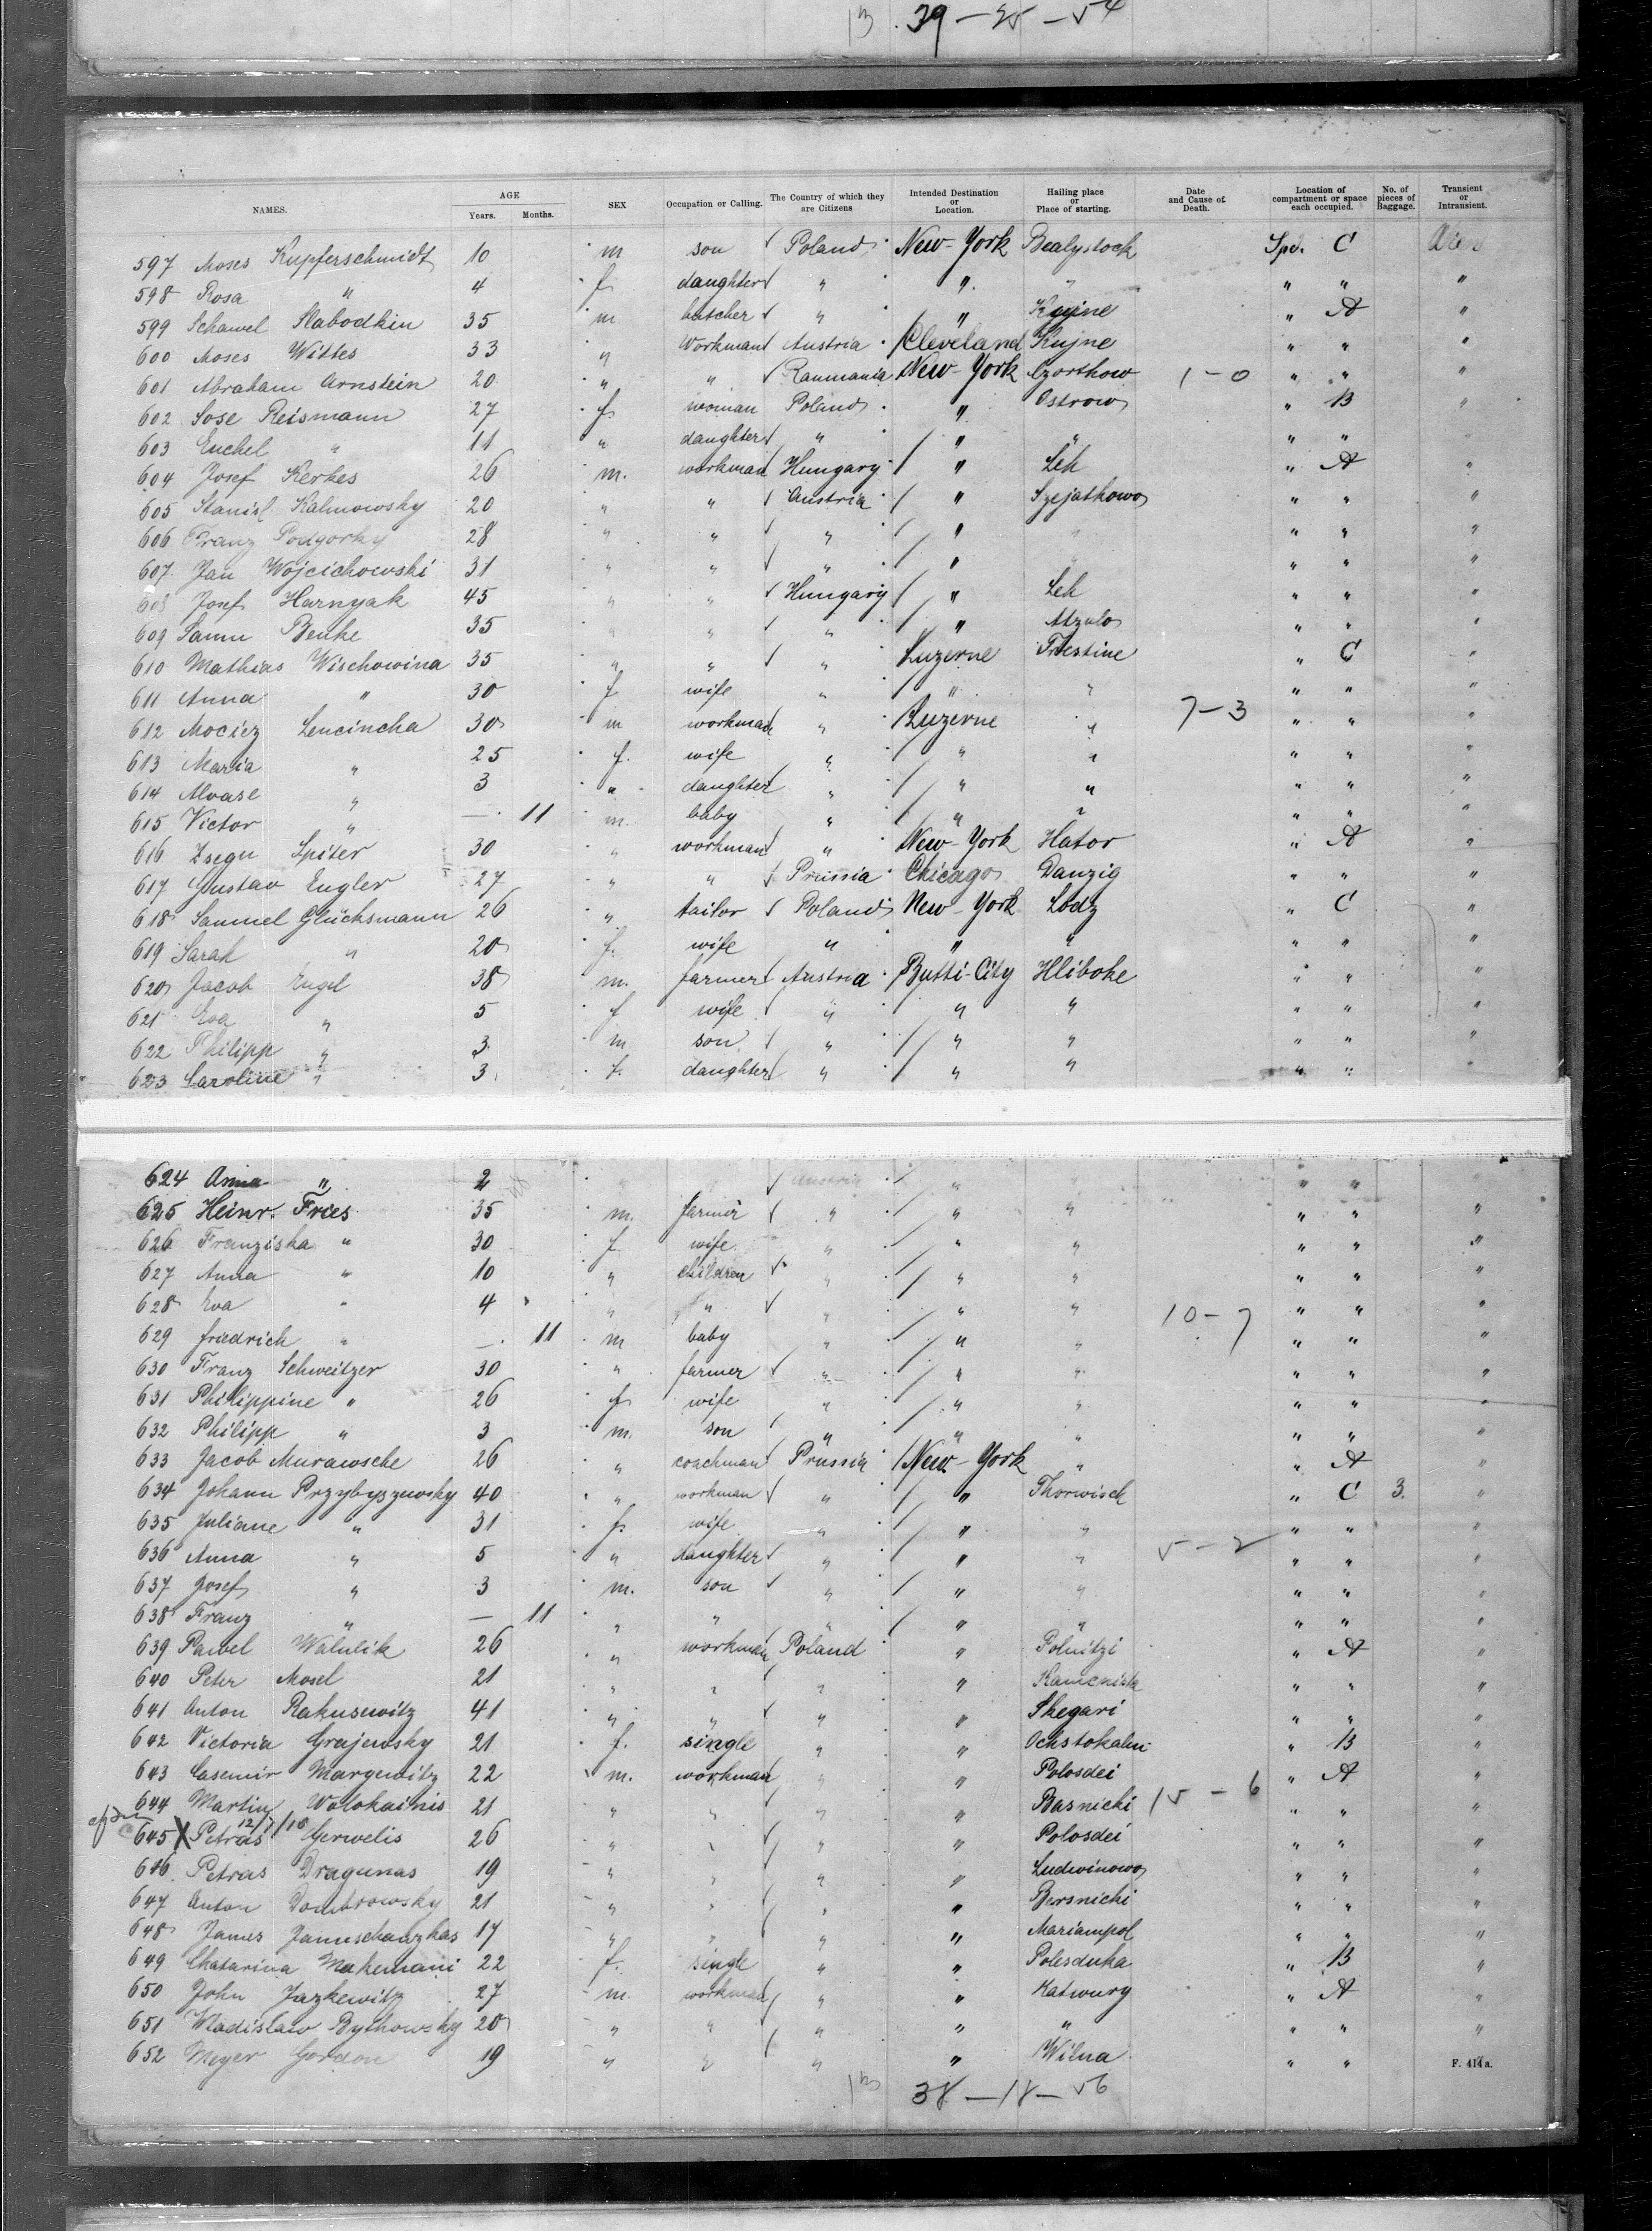 13. 39 — 25 — 54
NAMES. AGE Years. Months. SEX Occupation or Calling. The Country of which they are Citizens Intended Destination or Location. Hailing place or Place of starting. Date and Cause of Death. Location of compartment or space each occupied. No. of pieces of Baggage. Transient or Intransient.
597 Moses Kupferschmidt 10 m son Poland New-York Bealystock Spd. C
598 Rosa " 4 f. daughter " " " " " "
599 Schawel Slabodkin 35 m butcher " " Kujne " A "
600 Moses Wittes 33 " Workman Austria Cleveland Kujne " " "
601 Abraham Arnstein 20 " " Raumania New-York Czorthow 1-0 " " "
602 Sose Reismann 27 f. woman Poland " Ostrow " B "
603 Euchel " 11 " daughter " " " " " "
604 Josef Kerkes 26 m. workman Hungary " Leh " A "
605 Stanisl Kalinowsky 20 " " Austria " Szejathowo " " "
606 Franz Podgorky 28 " " " " " " " "
607 Jan Wojcichowski 31 " " " " " " " "
608 Josef Harnyak 45 " " Hungary " Leh " " "
609 Samu Benke 35 " " " " Atzulo " " "
610 Mathias Wischowina 35 " " " Luzerne Frestine " C "
611 Anna " 30 f wife " " " " " "
612 Mociez Lencincha 30 m workman " Luzerne " 7-3 " " "
613 Maria " 25 f. wife " " " " " "
614 Alvase " 3 " daughter " " " " " "
615 Victor " — 11 m. baby " " " " " "
616 Zsegu Spiter 30 " workman " New-York Hator " A "
617 Gustav Engler 27 " " Prussia Chicago Danzig " " "
618 Samuel Glücksmann 26 " tailor Poland New-York Lodz " C "
619 Sarah " 20 f. wife " " " " " "
620 Jacob Engel 38 m. farmer Austria Butti-City Hliboke " " "
621 Eva " 5 f wife " " " " " "
622 Philipp " 3 m son " " " " " "
623 Caroline " 3 f. daughter " " " " " "
624 Anna " 2 " " Austria " " " " "
625 Heinr. Fries 35 m. farmer " " " " " "
626 Franziska " 30 f wife " " " " " "
627 Anna " 10 " children " " " " " "
628 Eva " 4 " " " " " 10-7 " " "
629 friedrich " — 11 m baby " " " " " "
630 Franz Schweitzer 30 " farmer " " " " " "
631 Philippine " 26 f wife " " " " " "
632 Philipp " 3 m. son " " " " " "
633 Jacob Murawsche 26 " coachman Prussia New-York " " A "
634 Johann Przybyszewsky 40 " workman " " Thorwisch " C 3. "
635 Juliane " 31 f. wife " " " " " "
636 Anna " 5 " daughter " " " 5-2 " " "
637 Josef " 3 m. son " " " " " "
638 Franz " — 11 " " " " " " " "
639 Pawel Walulik 26 " workman Poland " Polnitzi " A "
640 Peter Mosel 21 " " " " " " "
641 Anton Rakusewitz 41 " " " " Skegari " " "
642 Victoria Grajewsky 21 f. single " " Ochstokalni " B "
643 Casemir Margewitz 22 m. workman " " Polosdei " A "
644 Martin Wolokainis 21 " " " " Basnicki 15-6 " " "
12/7/18
645 X Petras Gerwelis 26 " " " " Polosdei " " "
646 Petras Dragunas 19 " " " " Ludwinowo " " "
647 Anton Dombrowsky 21 " " " " Bersnicki " " "
648 James Januschauzkas 17 " " " " Mariampol " " "
649 Chatarina Makemani 22 f. single " " Polesduka " B "
650 John Jazkewitz 27 m. workman " " Hatwurg " A "
651 Wladislaw Bythowsky 20 " " " " " " " "
652 Meyer Gordon 19 " " " " Wilna " " "
F. 414a.
13 38 — 18 — 56